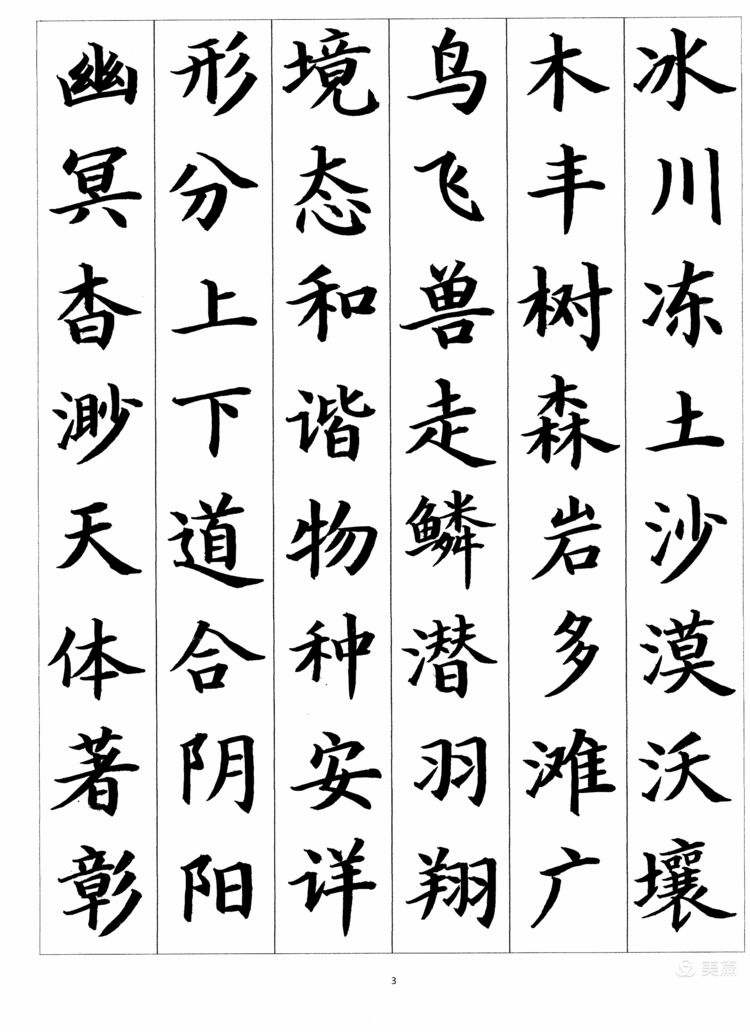 冰川冻土沙漠沃壤
木丰树森岩多滩广
鸟飞兽走鳞潜羽翔
境态和谐物种安详
形分上下道合阴阳
幽冥杳渺天体著彰
3
美篇